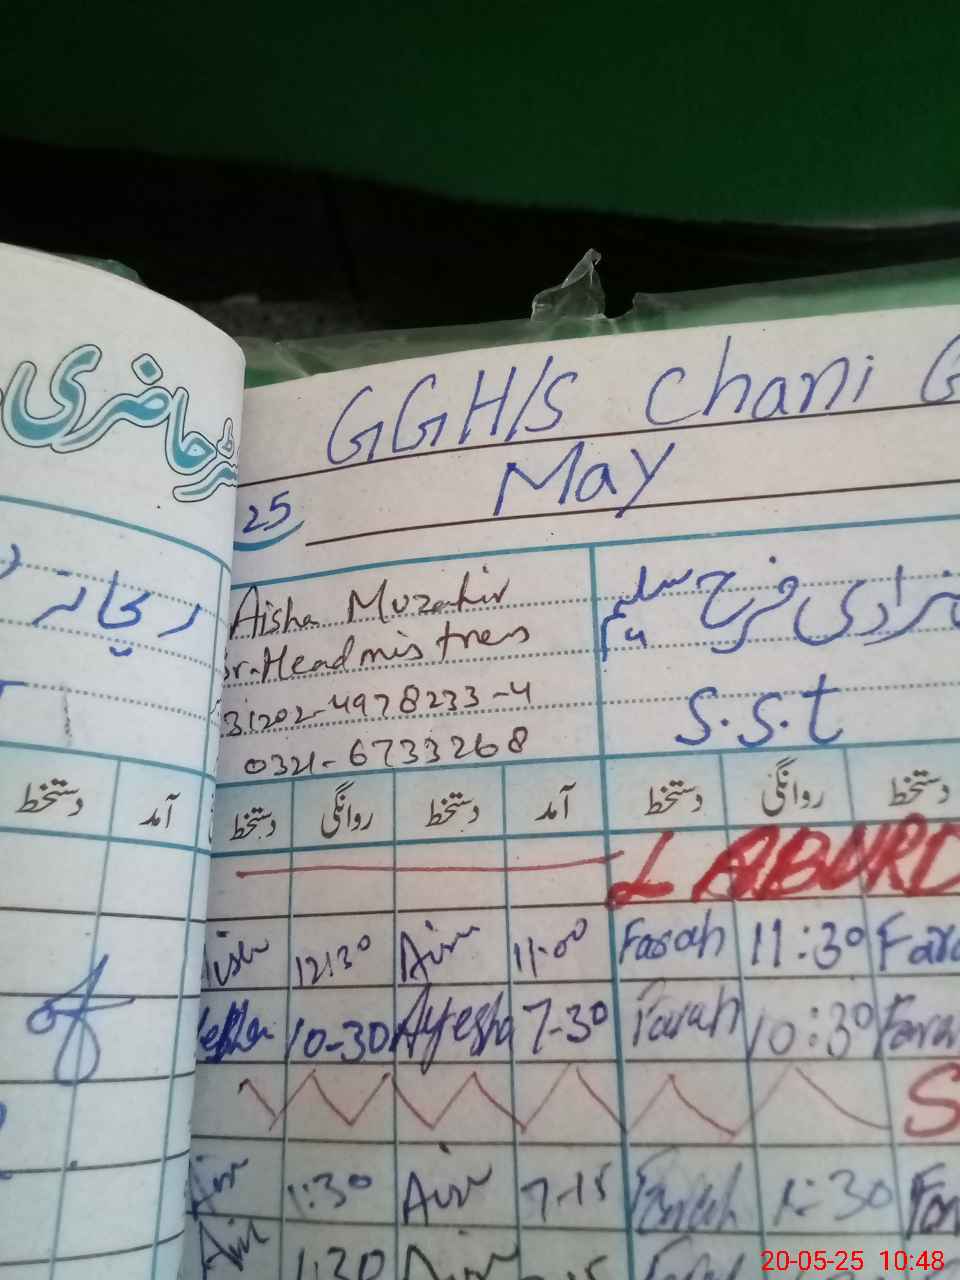 رجسٹر حاضری
GGH/S Chani G
May
25
ریحانہ
Aisha Muzahir
Sr. Headmistress
31202-4978233-4
0321-6733268
شہزادی فرح سلیم
S.S.t
دستخط آمد
دستخط روانگی دستخط آمد دستخط روانگی دستخط
LABURD
12:30 11:00 Farah 11:30 Fara
10-30 Ayesha 7-30 Farah 10:30 Fara
S
1:30 7-15 Farah 1:30 Far
1:30
20-05-25 10:48